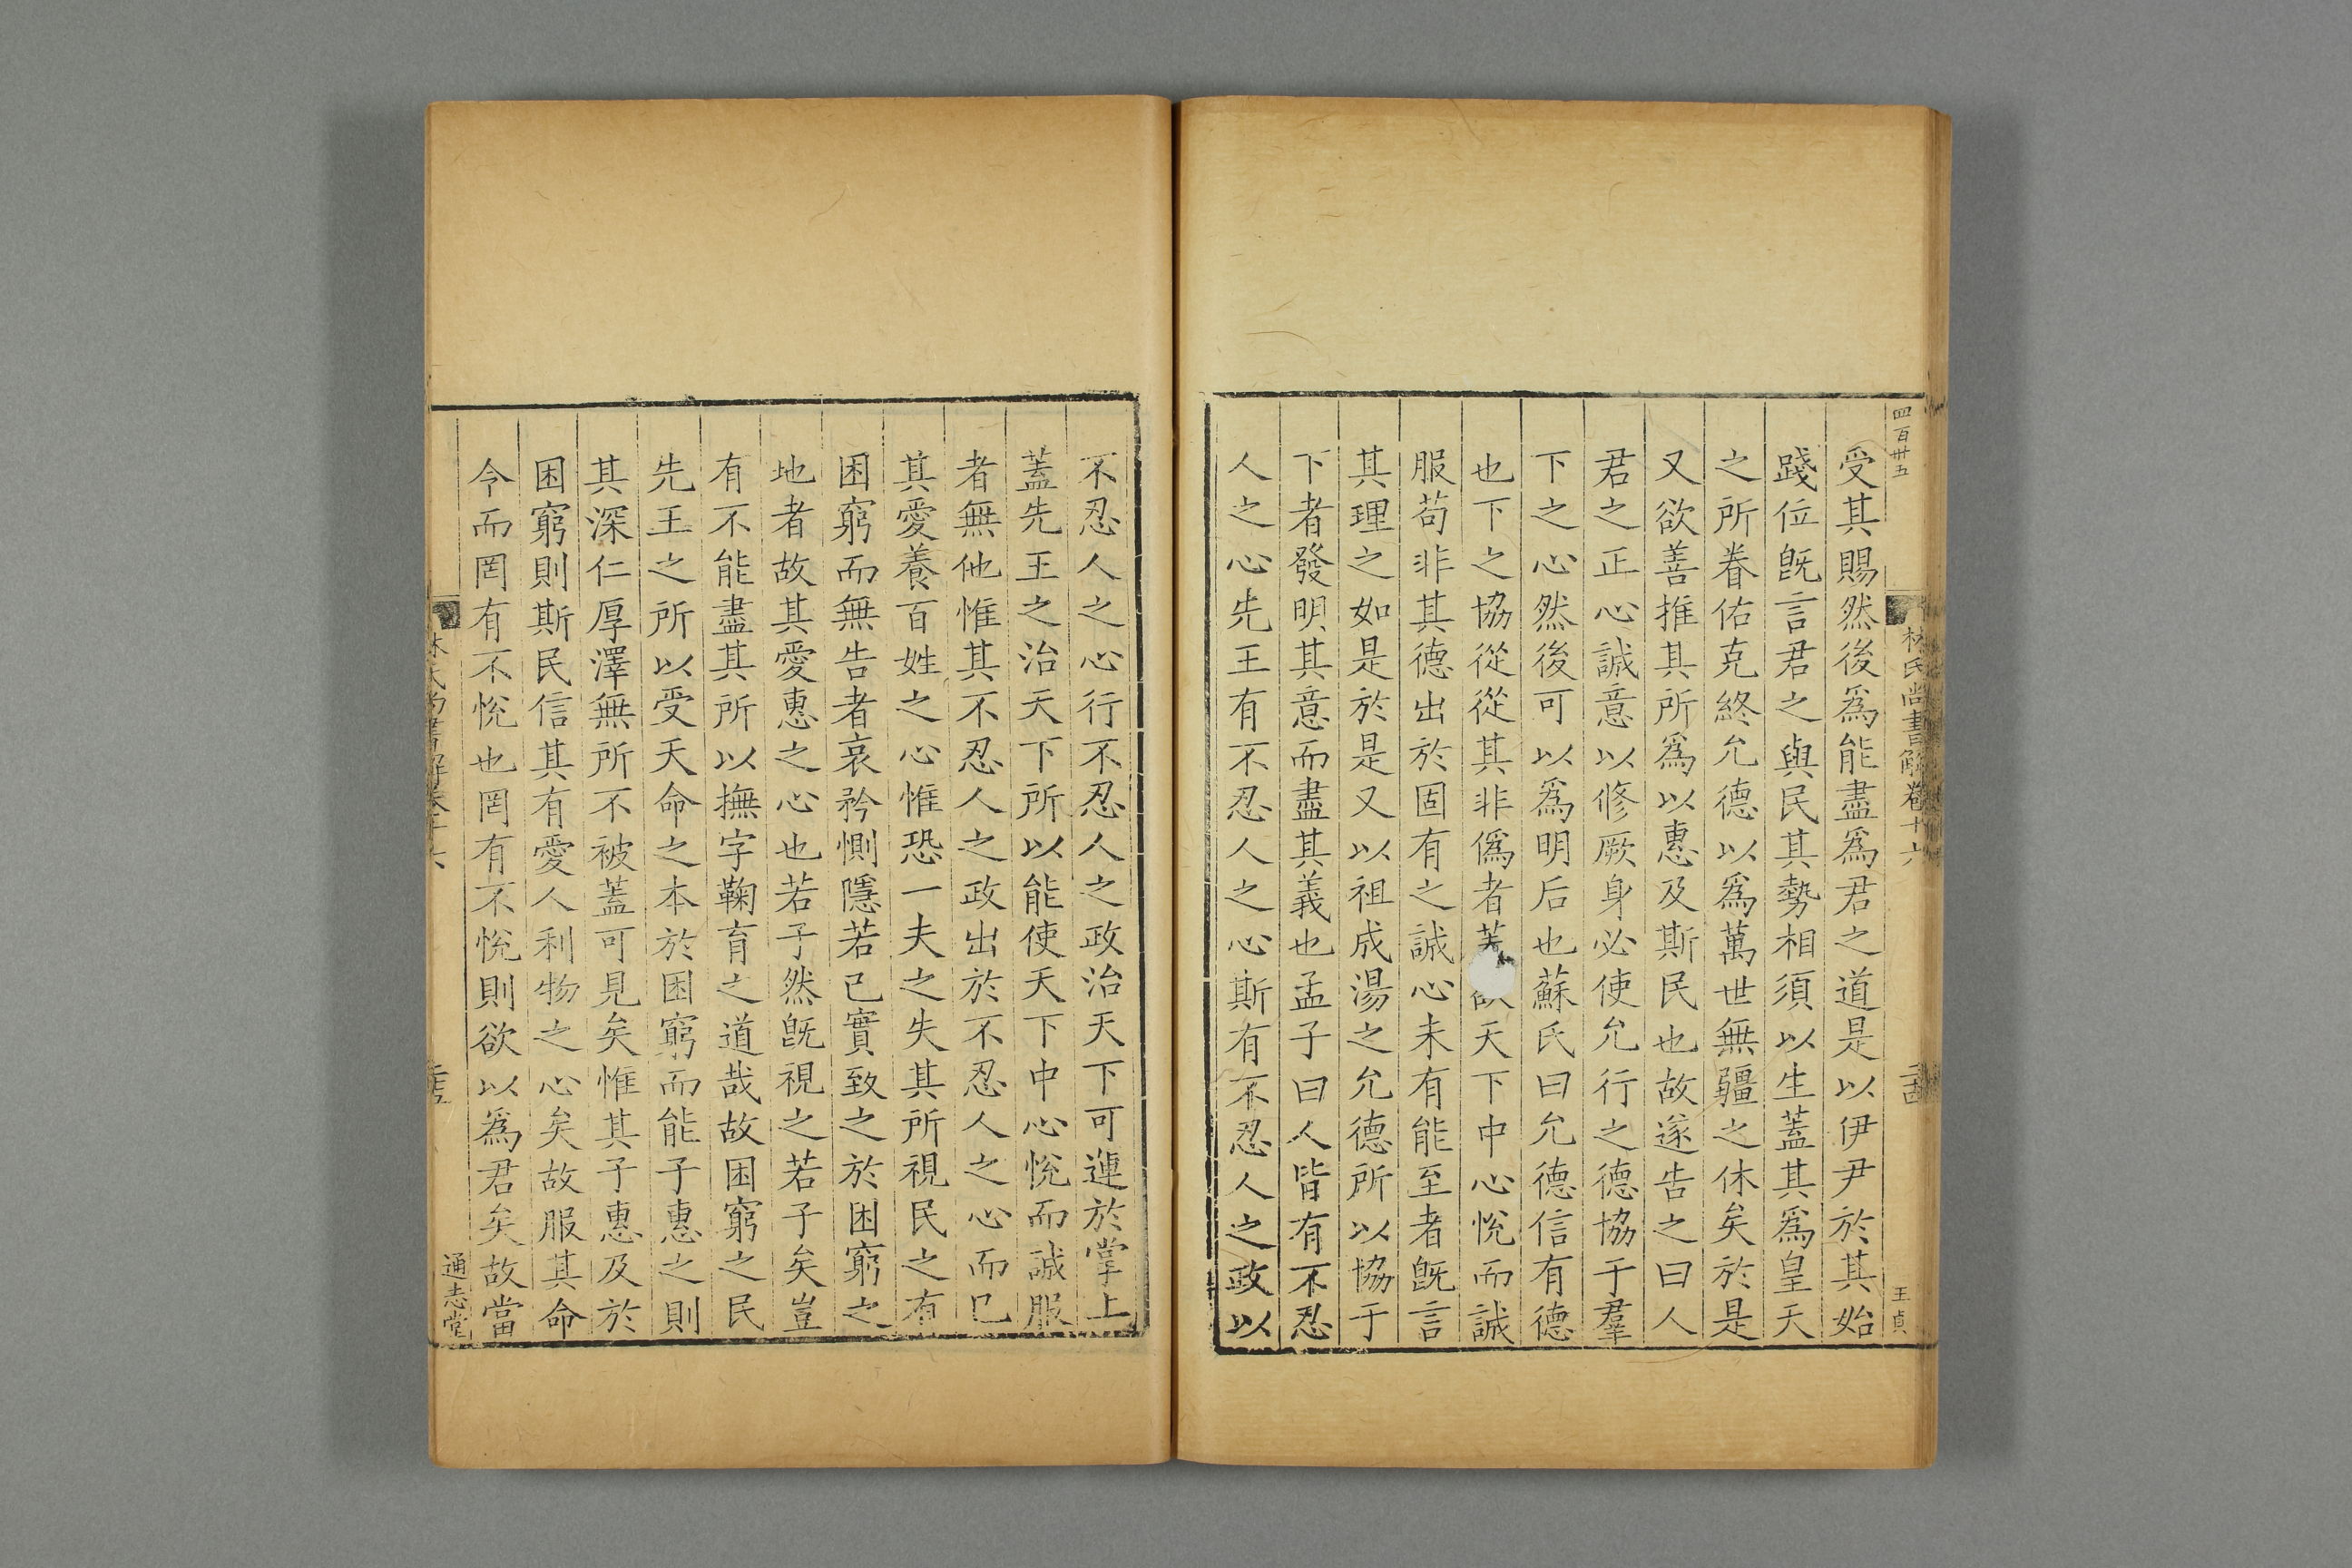 四百卅五
林氏尚書解卷十六
王貞
受其賜然後爲能盡爲君之道是以伊尹於其始
踐位旣言君之與民其勢相須以生蓋其爲皇天
之所眷佑克終允德以爲萬世無疆之休矣於是
又欲善推其所爲以惠及斯民也故遂告之曰人
君之正心誠意以修厥身必使允行之德協于羣
下之心然後可以爲明后也蘇氏曰允德信有德
也下之協從從其非僞者天下中心悅而誠
服苟非其德出於固有之誠心未有能至者旣言
其理之如是於是又以祖成湯之允德所以協于
下者發明其意而盡其義也孟子曰人皆有不忍
人之心先王有不忍人之心斯有不忍人之政以
不忍人之心行不忍人之政治天下可運於掌上
蓋先王之治天下所以能使天下中心悅而誠服
者無他惟其不忍人之政出於不忍人之心而已
其愛養百姓之心惟恐一夫之失其所視民之有
困窮而無告者哀矜惻隱若己實致之於困窮之
地者故其愛惠之心也若子然旣視之若子矣豈
有不能盡其所以撫字鞠育之道哉故困窮之民
先王之所以受天命之本於困窮而能子惠之則
其深仁厚澤無所不被蓋可見矣惟其子惠及於
困窮則斯民信其有愛人利物之心矣故服其命
今而罔有不悅也罔有不悅則欲以爲君矣故當
林氏尚書解卷十六
通志堂